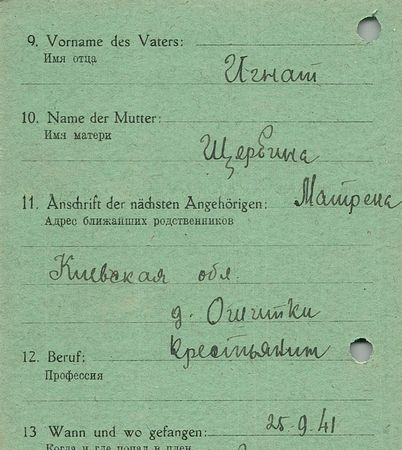 9. Vorname des Vaters:
Имя отца
Игнат
10. Name der Mutter:
Имя матери
Щербина
11. Anschrift der nächsten Angehörigen: Матрена
Адрес ближайших родственников
Киевская обл
д. Ошитки
12. Beruf: Крестьянин
Профессия
13 Wann und wo gefangen: 25.9.41
Когда и где попал в плен